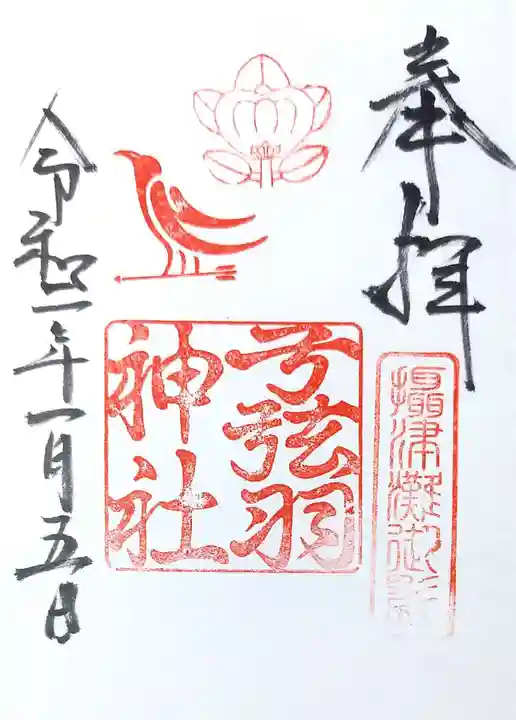 奉拝
攝津灘御影
弓弦羽
神社
令和二年一月五日